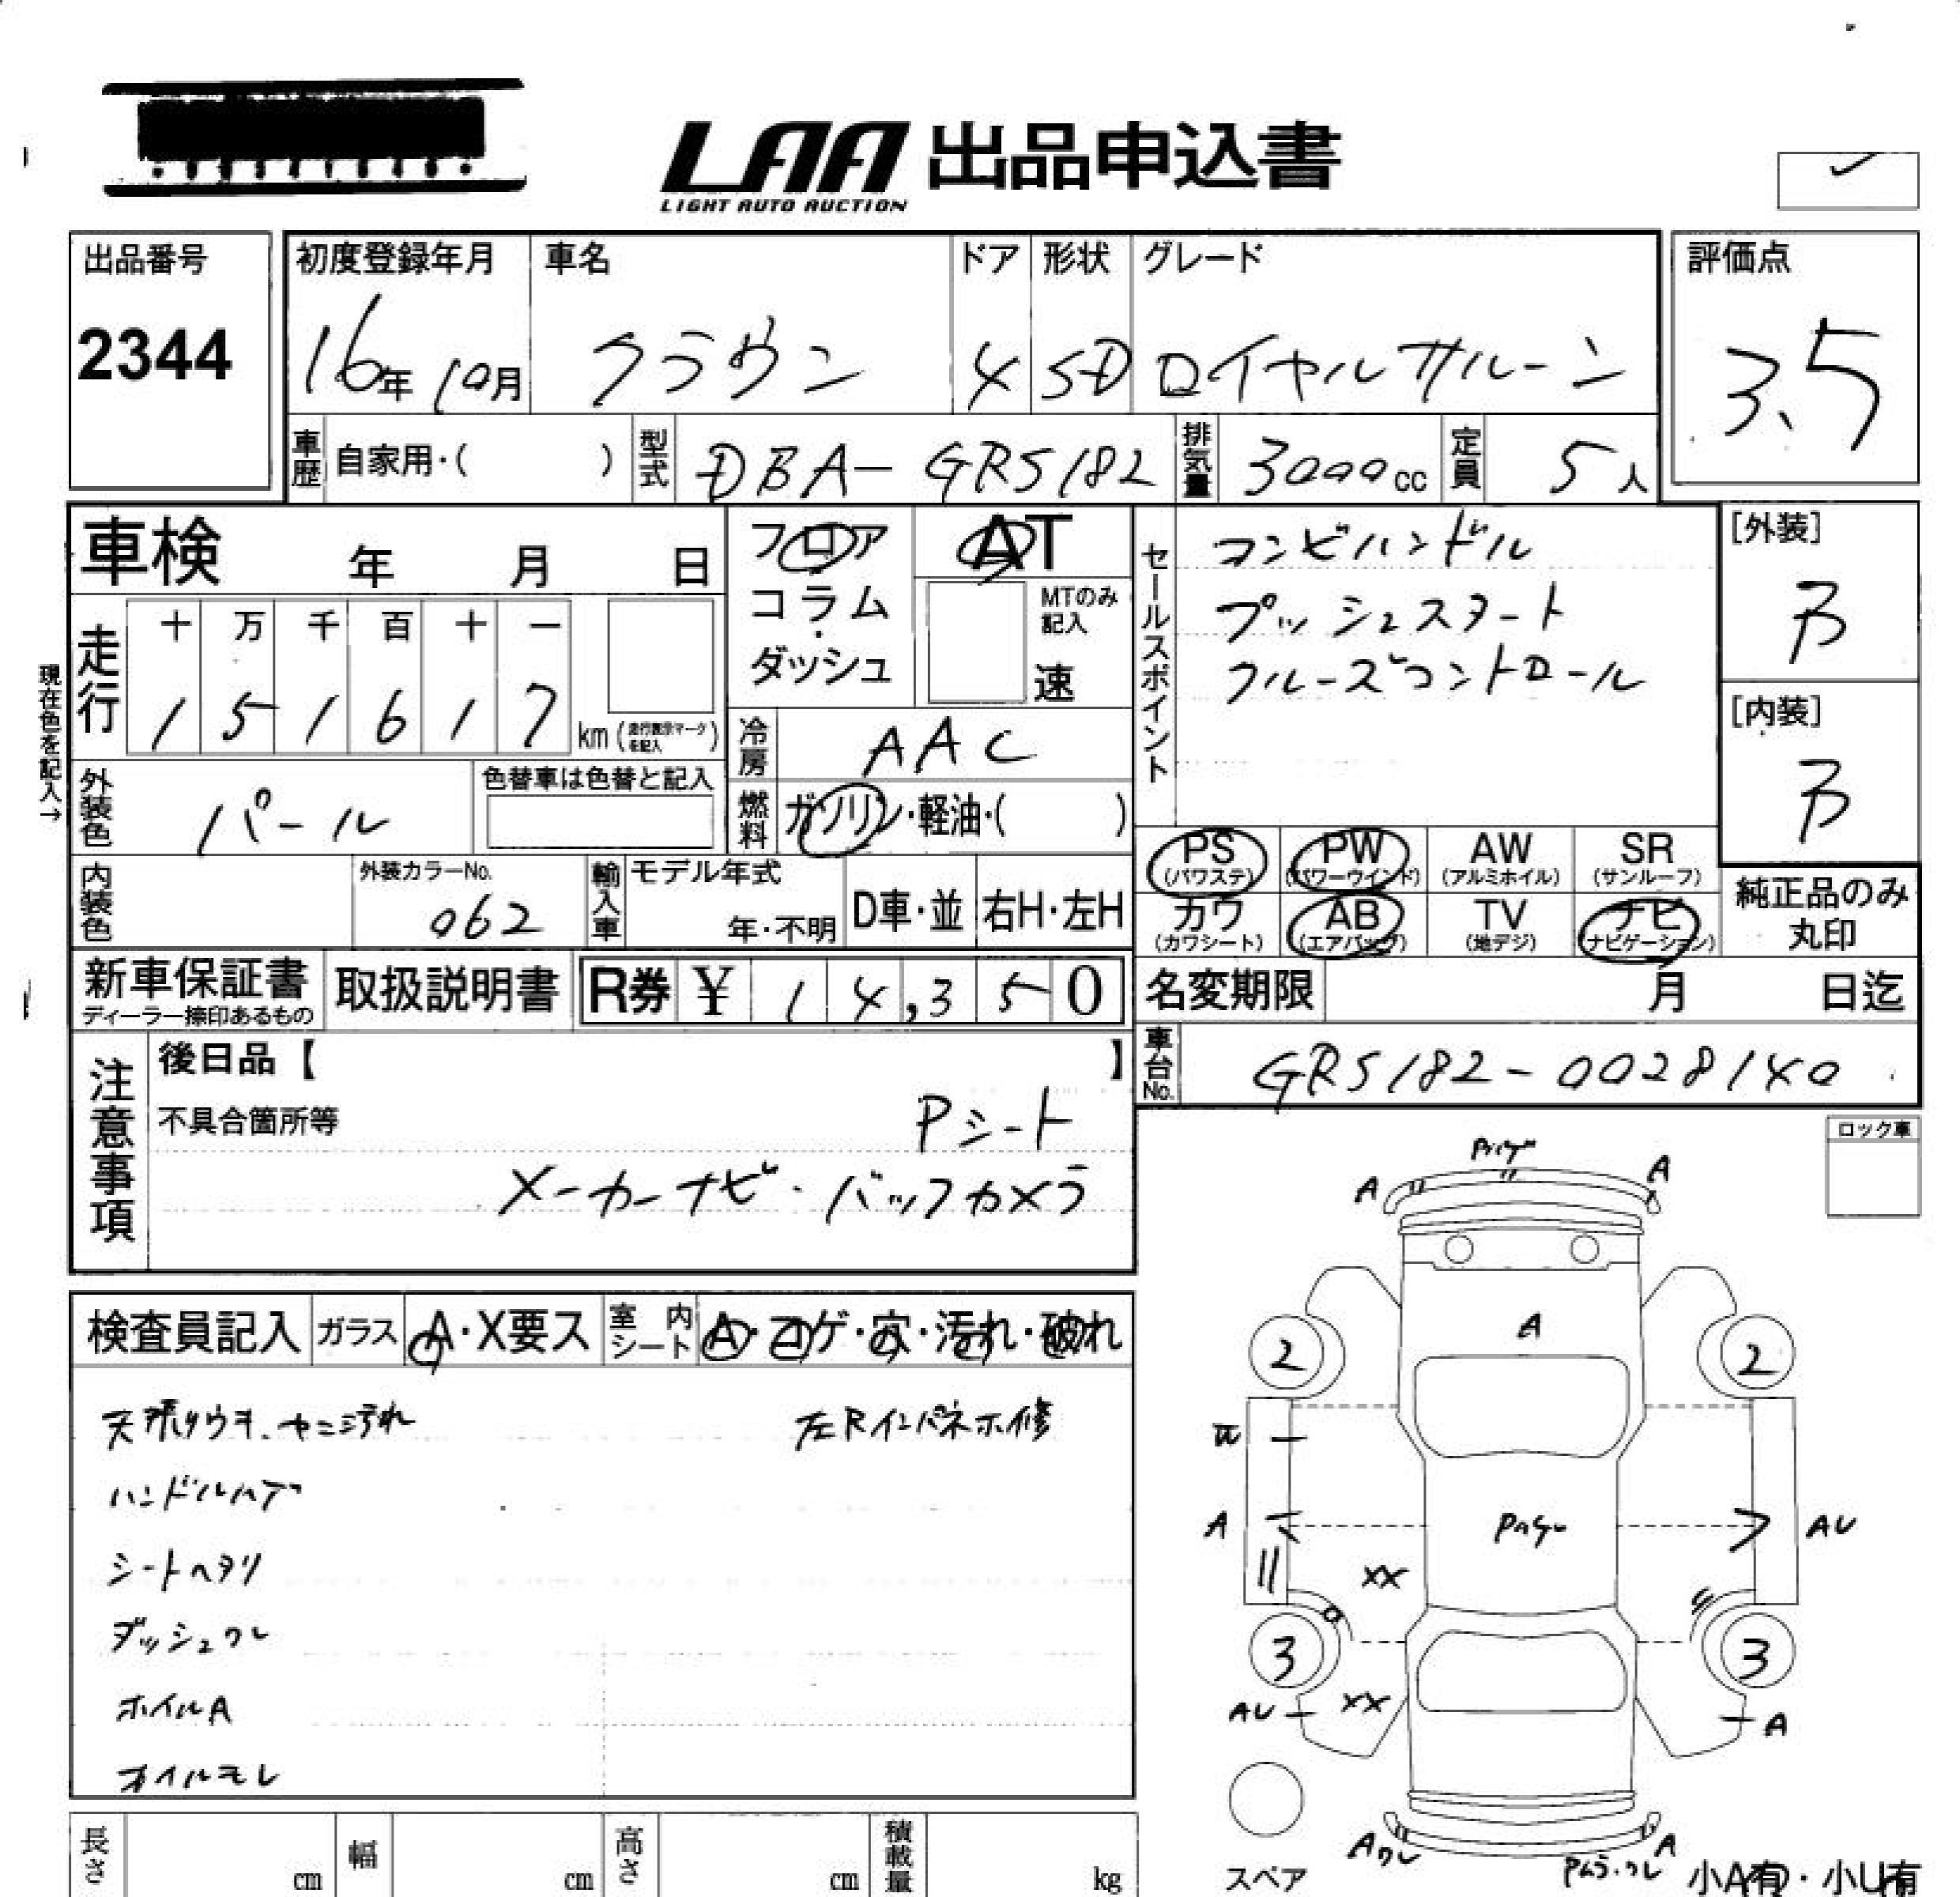 LAA 出品申込書
LIGHT AUTO AUCTION
出品番号
2344
初度登録年月
16年 10月
車名
クラウン
ドア
4
形状
SD
グレード
ロイヤルサルーン
評価点
3.5
車歴 自家用・( )
型式 DBA-GRS182
排気量 3000cc
定員 5人
車検 年 月 日
フロア
コラム・
ダッシュ
AT
MTのみ
記入
速
セールスポイント
コンビハンドル
プッシュスタート
クルーズコントロール
[外装]
B
[内装]
B
現在色を記入→
走行
十 万 千 百 十 一
1 5 1 6 1 7 km (走行表示マークを記入)
冷房 AAC
外装色 パール
色替車は色替と記入
燃料 ガソリン・軽油・( )
PS (パワステ) PW (パワーウインド) AW (アルミホイル) SR (サンルーフ)
カワ (カワシート) AB (エアバッグ) TV (地デジ) ナビ (ナビゲーション)
純正品のみ
丸印
内装色
外装カラーNo.
062
輸入車 モデル年式
年・不明 D車・並 右H・左H
新車保証書
ディーラー捺印あるもの
取扱説明書
R券 ¥ 14,350
名変期限 月 日迄
注意事項
後日品【 】
不具合箇所等 Pシート
メーカーナビ・バックカメラ
車台No. GRS182-0028140
ロック車
検査員記入 ガラス A・X要ス 室内シート A・コゲ・穴・汚れ・破れ
天張りウキ、ヤニ汚れ 左Rインパネホ修
ハンドルハゲ
シートヘタリ
ダッシュワレ
ホイルA
オイルモレ
A A
A
2 2
A AU
XX
3 3
AU XX A
Aワレ A
スペア
小A有・小U有
長さ cm 幅 cm 高さ cm 積載量 kg